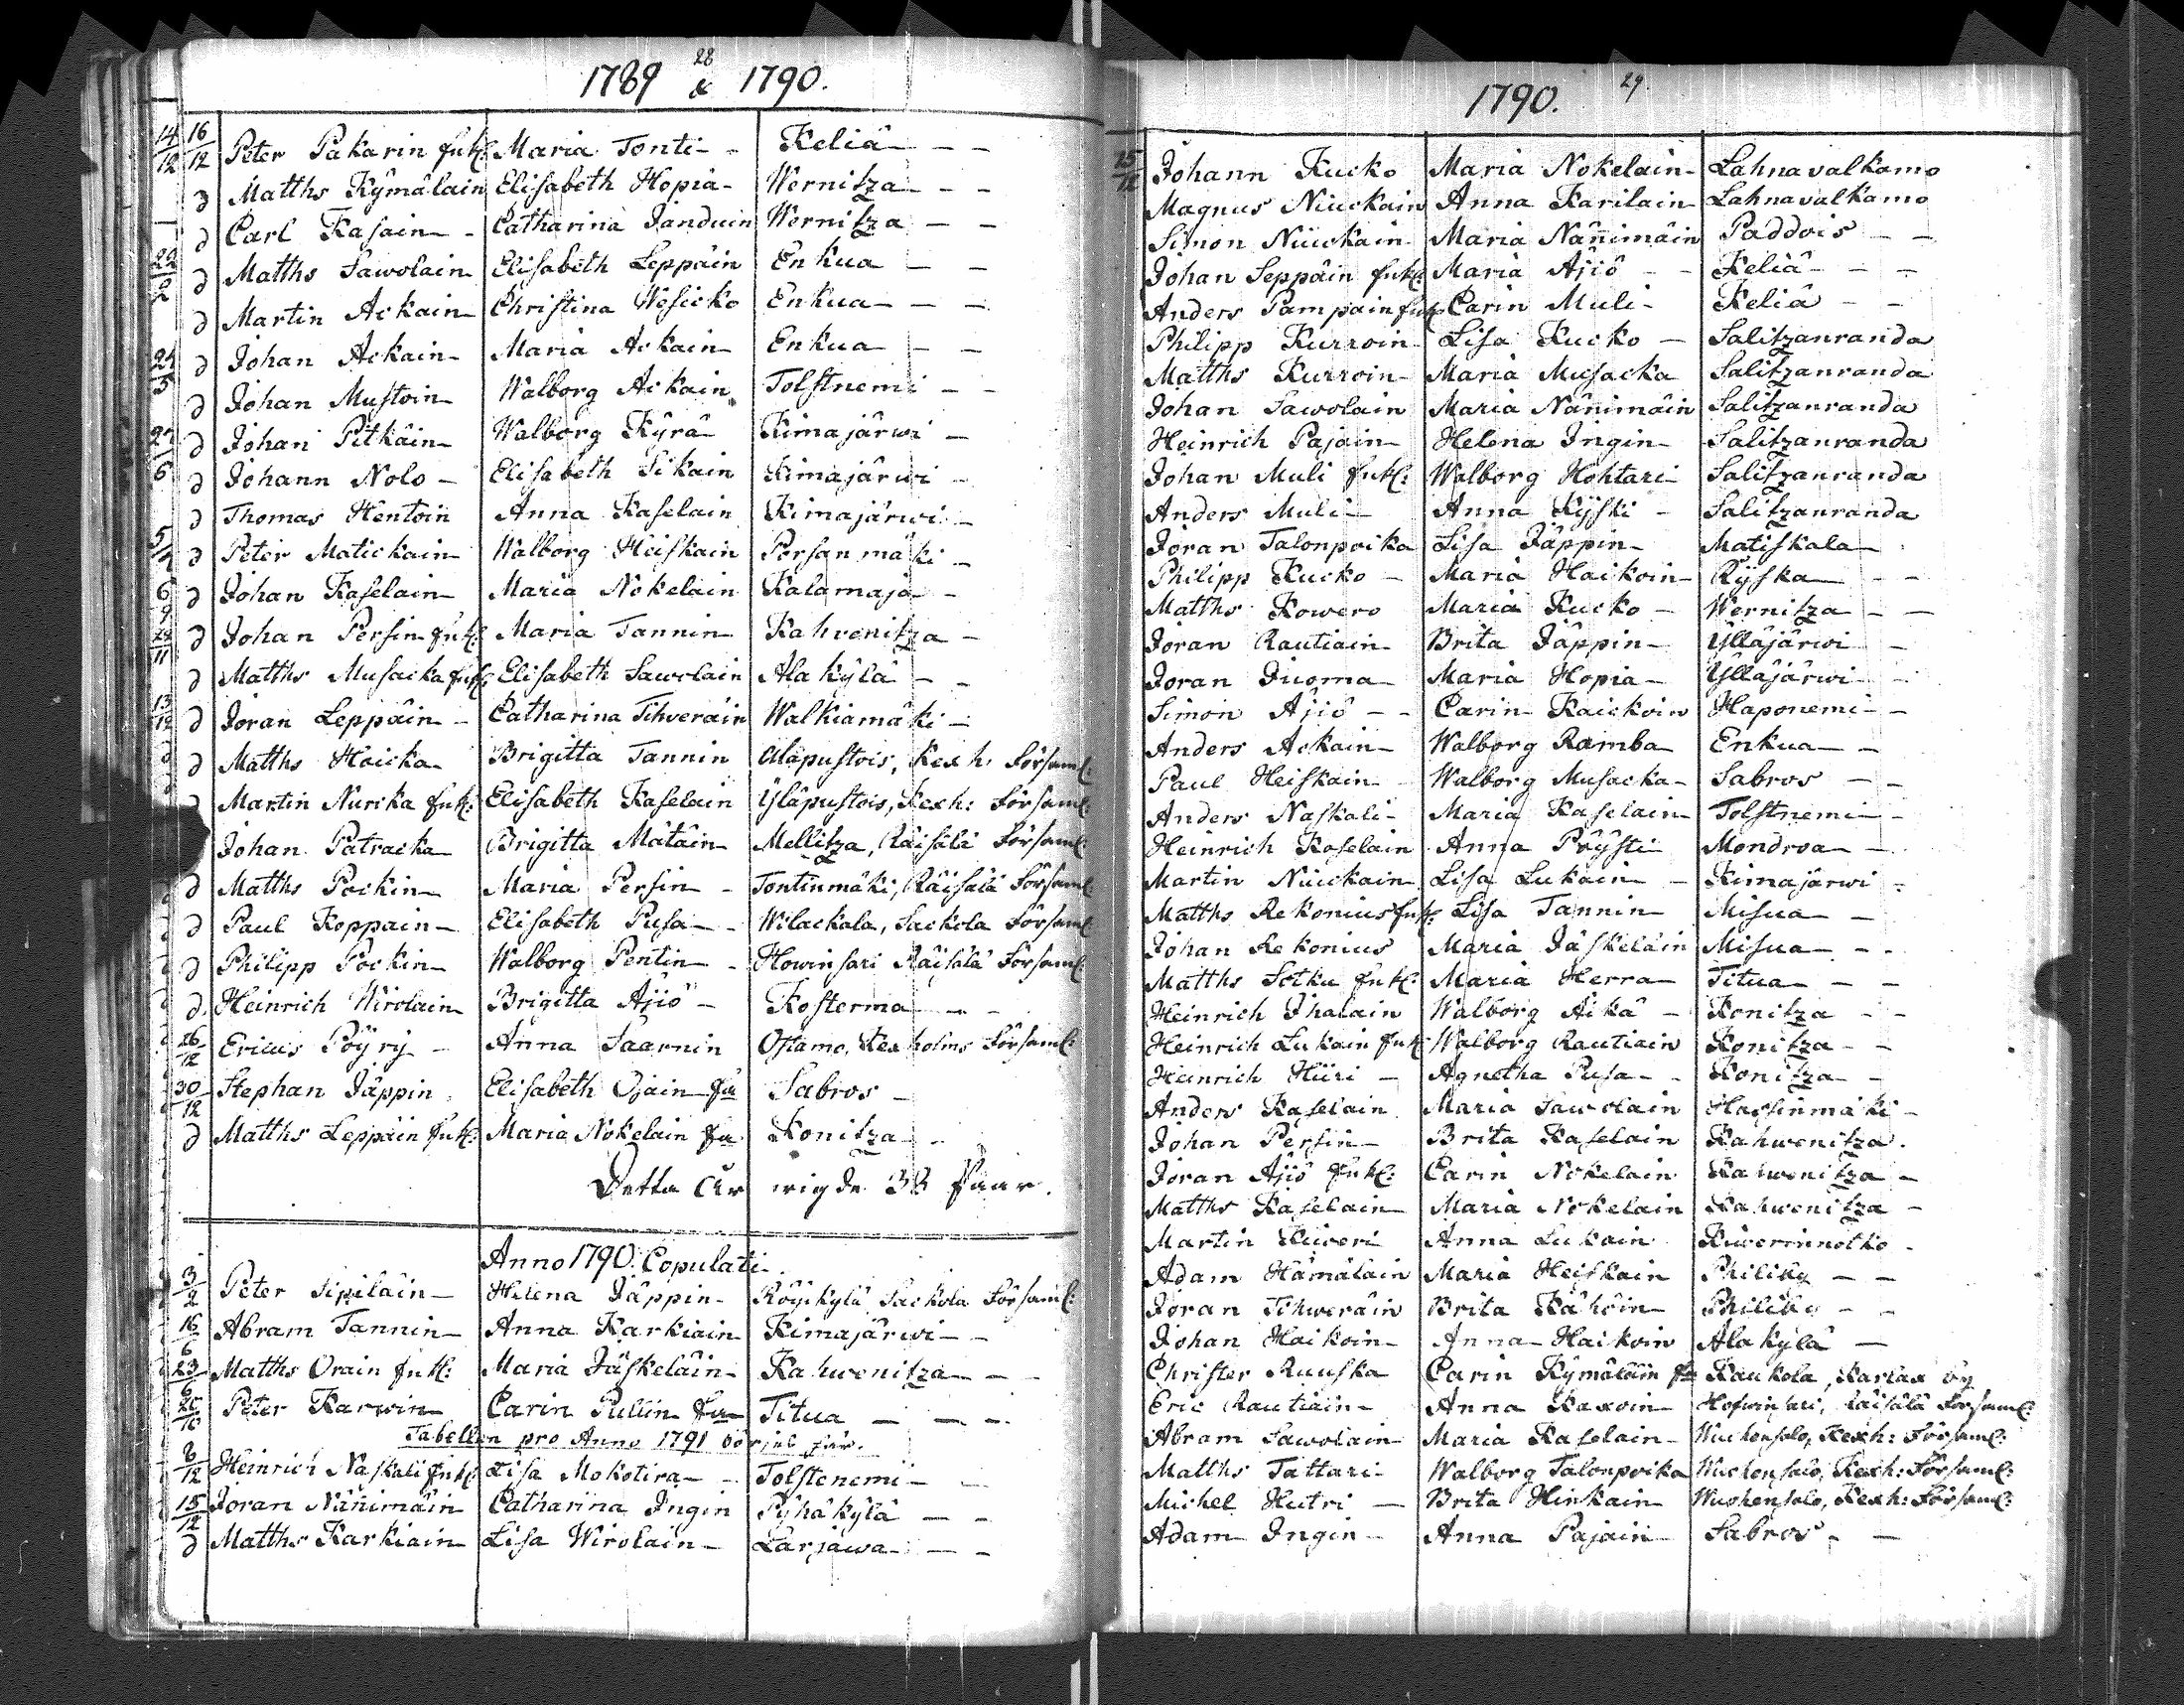 28
1789 & 1790.
14/12 16/12 Peter Pakarin Enkl: Maria Tonti - Keliâ - -
d Matths Kÿmâlain Elisabeth Hopia - Wernitza - -
d Carl Kasain - Catharina Janduin Wernitza - -
d Matths Sawolain Elisabeth Leppäin Enkua - -
d Martin Ackain Christina Wesicko Enkua - -
d Johan Ackain Maria Ackain Enkua - -
d Johan Mustoin Walborg Ackain Tolstnemi - -
d Johan Pitkäin Walborg Kÿrâ Kimajärwi -
d Johann Nolo - Elisabeth Sikain Kimajärwi -
d Thomas Hentoin Anna Kaselain Kimajärwi -
5/4 d Peter Matickain Walborg Heiskain Porsanmäki -
6/9 d Johan Kaselain Maria Nokelain Kalamaja -
d Johan Persin Enkl: Maria Tannin Kahvenitza -
d Matths Musacka Enkl: Elisabeth Sawolain Alakÿlâ - -
13/12 d Jöran Leppäin - Catharina Tihveräin Walkiamäki -
d d Matths Haicka Brigitta Tannin Alapustois, Kexh: Församl:
d Martin Nurika Enkl: Elisabeth Kaselain Ÿläpustois, Kexh: Församl:
Johan Patracka Brigitta Mätäin Mellitza, Räisälä Församl:
d Matths Pockin Maria Persin - Tontinmäki, Räisälä Församl:
d Paul Koppain - Elisabeth Pusa - Wilackala, Sackola Församl:
d Philipp Pockin Walborg Pentin - Howinsari Räisälä Församl:
d Heinrich Wirolain Brigitta Äjiö - Kosterma - -
26/12 Ericus Pöÿrÿ - Anna Saarnin Ostamo, Kexholms Församl:
30/12 Stephan Jäppin Elisabeth Ojain Ea Sabros -
d Matths Leppäin Enkl: Maria Nokelain Ea Konitza -
Detta År wigde 38 Paar.
Anno 1790. Copulati
3/2 Peter Sipiläin Helena Jäppin - Röÿkÿlâ Sackola Församl:
16/6 Abram Tannin Anna Karkiain Kimajärwi -
23/6 Matths Orain Enkl: Maria Jäskeläin Kahwenitza - -
Peter Karwin Carin Pullin Ea Titua - -
Tabellen pro Anno 1791 börjat här.
8/12 Heinrich Naskali Enkl: Lisa Mokotira - Tolstenemi -
15/12 Jöran Nänimäin Catharina Ingin Pÿhäkÿlâ - -
d Matths Karkiain Lisa Wirolain Larjawa - -
29
1790.
15/12 Johann Kucko Maria Nokelain Lahnavalkamo
Magnus Niuckain Anna Karilain Lahnavalkamo
Simon Niuckain Maria Nänimäin Paddois - -
Johan Seppäin Enkl: Maria Äjiö - - Keliâ - -
Anders Pampain Enkl: Carin Muli - Keliâ - -
Philipp Kurroin Lisa Kucko - Salitzanranda
Matths Kurroin Maria Musacka Salitzanranda
Johan Sawolain Maria Nänimäin Salitzanranda
Heinrich Pajain Helena Ingin Salitzanranda
Johan Muli Enkl: Walborg Hohtari Salitzanranda
Anders Muli Anna Kÿski - Salitzanranda
Jöran Talonpoika Lisa Jäppin Matiskala -
Philipp Kucko - Maria Haikoin Rÿska - -
Matths Kowero Maria Kucko - Wernitza - -
Jöran Rautiain Brita Jäppin Ÿlläjärwi -
Jöran Juoma Maria Hopia Ÿlläjärwi -
Simon Äjiö - - Carin Kaickoin Haponemi -
Anders Ackain Walborg Ramba Enkua - -
Paul Heiskain Walborg Musacka Sabros - -
Anders Naskali Maria Kaselain Tolstnemi -
Heinrich Kaselain Anna Pöÿsti Mondroa -
Martin Niuckain Lisa Lukain - Kimajärwi -
Matths Rekonius Enkl: Lisa Tannin Misua -
Johan Rekonius Maria Jäskeläin Misua - -
Matths Sotku Enkl: Maria Herra Titua - -
Heinrich Ihalain Walborg Aikâ - Konitza - -
Heinrich Lukain Enkl: Walborg Rautiain Konitza - -
Heinrich Hiiri - Agnetha Pusa - Konitza -
Anders Kaselain Maria Sawolain Hassinmäki -
Johan Persin Brita Kaselain Kahwenitza
Jöran Äjiö Enkl: Carin Nokelain Kahwenitza -
Matths Kaselain Maria Nokelain Kahwenitza -
Martin Kiweri Anna Lukain Kiwerinnotko -
Adam Hämäläin Maria Heiskain Philiby - -
Jöran Tihweräin Brita Kähöin Philiby - -
Johan Haikoin Anna Haikoin Alakÿlâ -
Christer Ruuska Carin Kÿmäläin Ea Kaukola, Karlax by
Eric Rautiain Anna Kaxoin Hofwinsari, Räisälä Församl:
Abram Sawolain Maria Kaselain Wuohensalo, Kexh: Församl:
Matths Tattari Walborg Talonpoika Wuohensalo, Kexh: Församl:
Michel Hutri - Brita Hinkain Wuohensalo, Kexh: Församl:
Adam Ingin - Anna Pajain Sabros - -